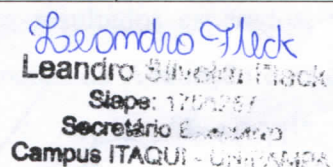 Leandro Fleck
Leandro Silveira Fleck
Siape:
Secretário Executivo
Campus ITAQUI - UNIPAMPA